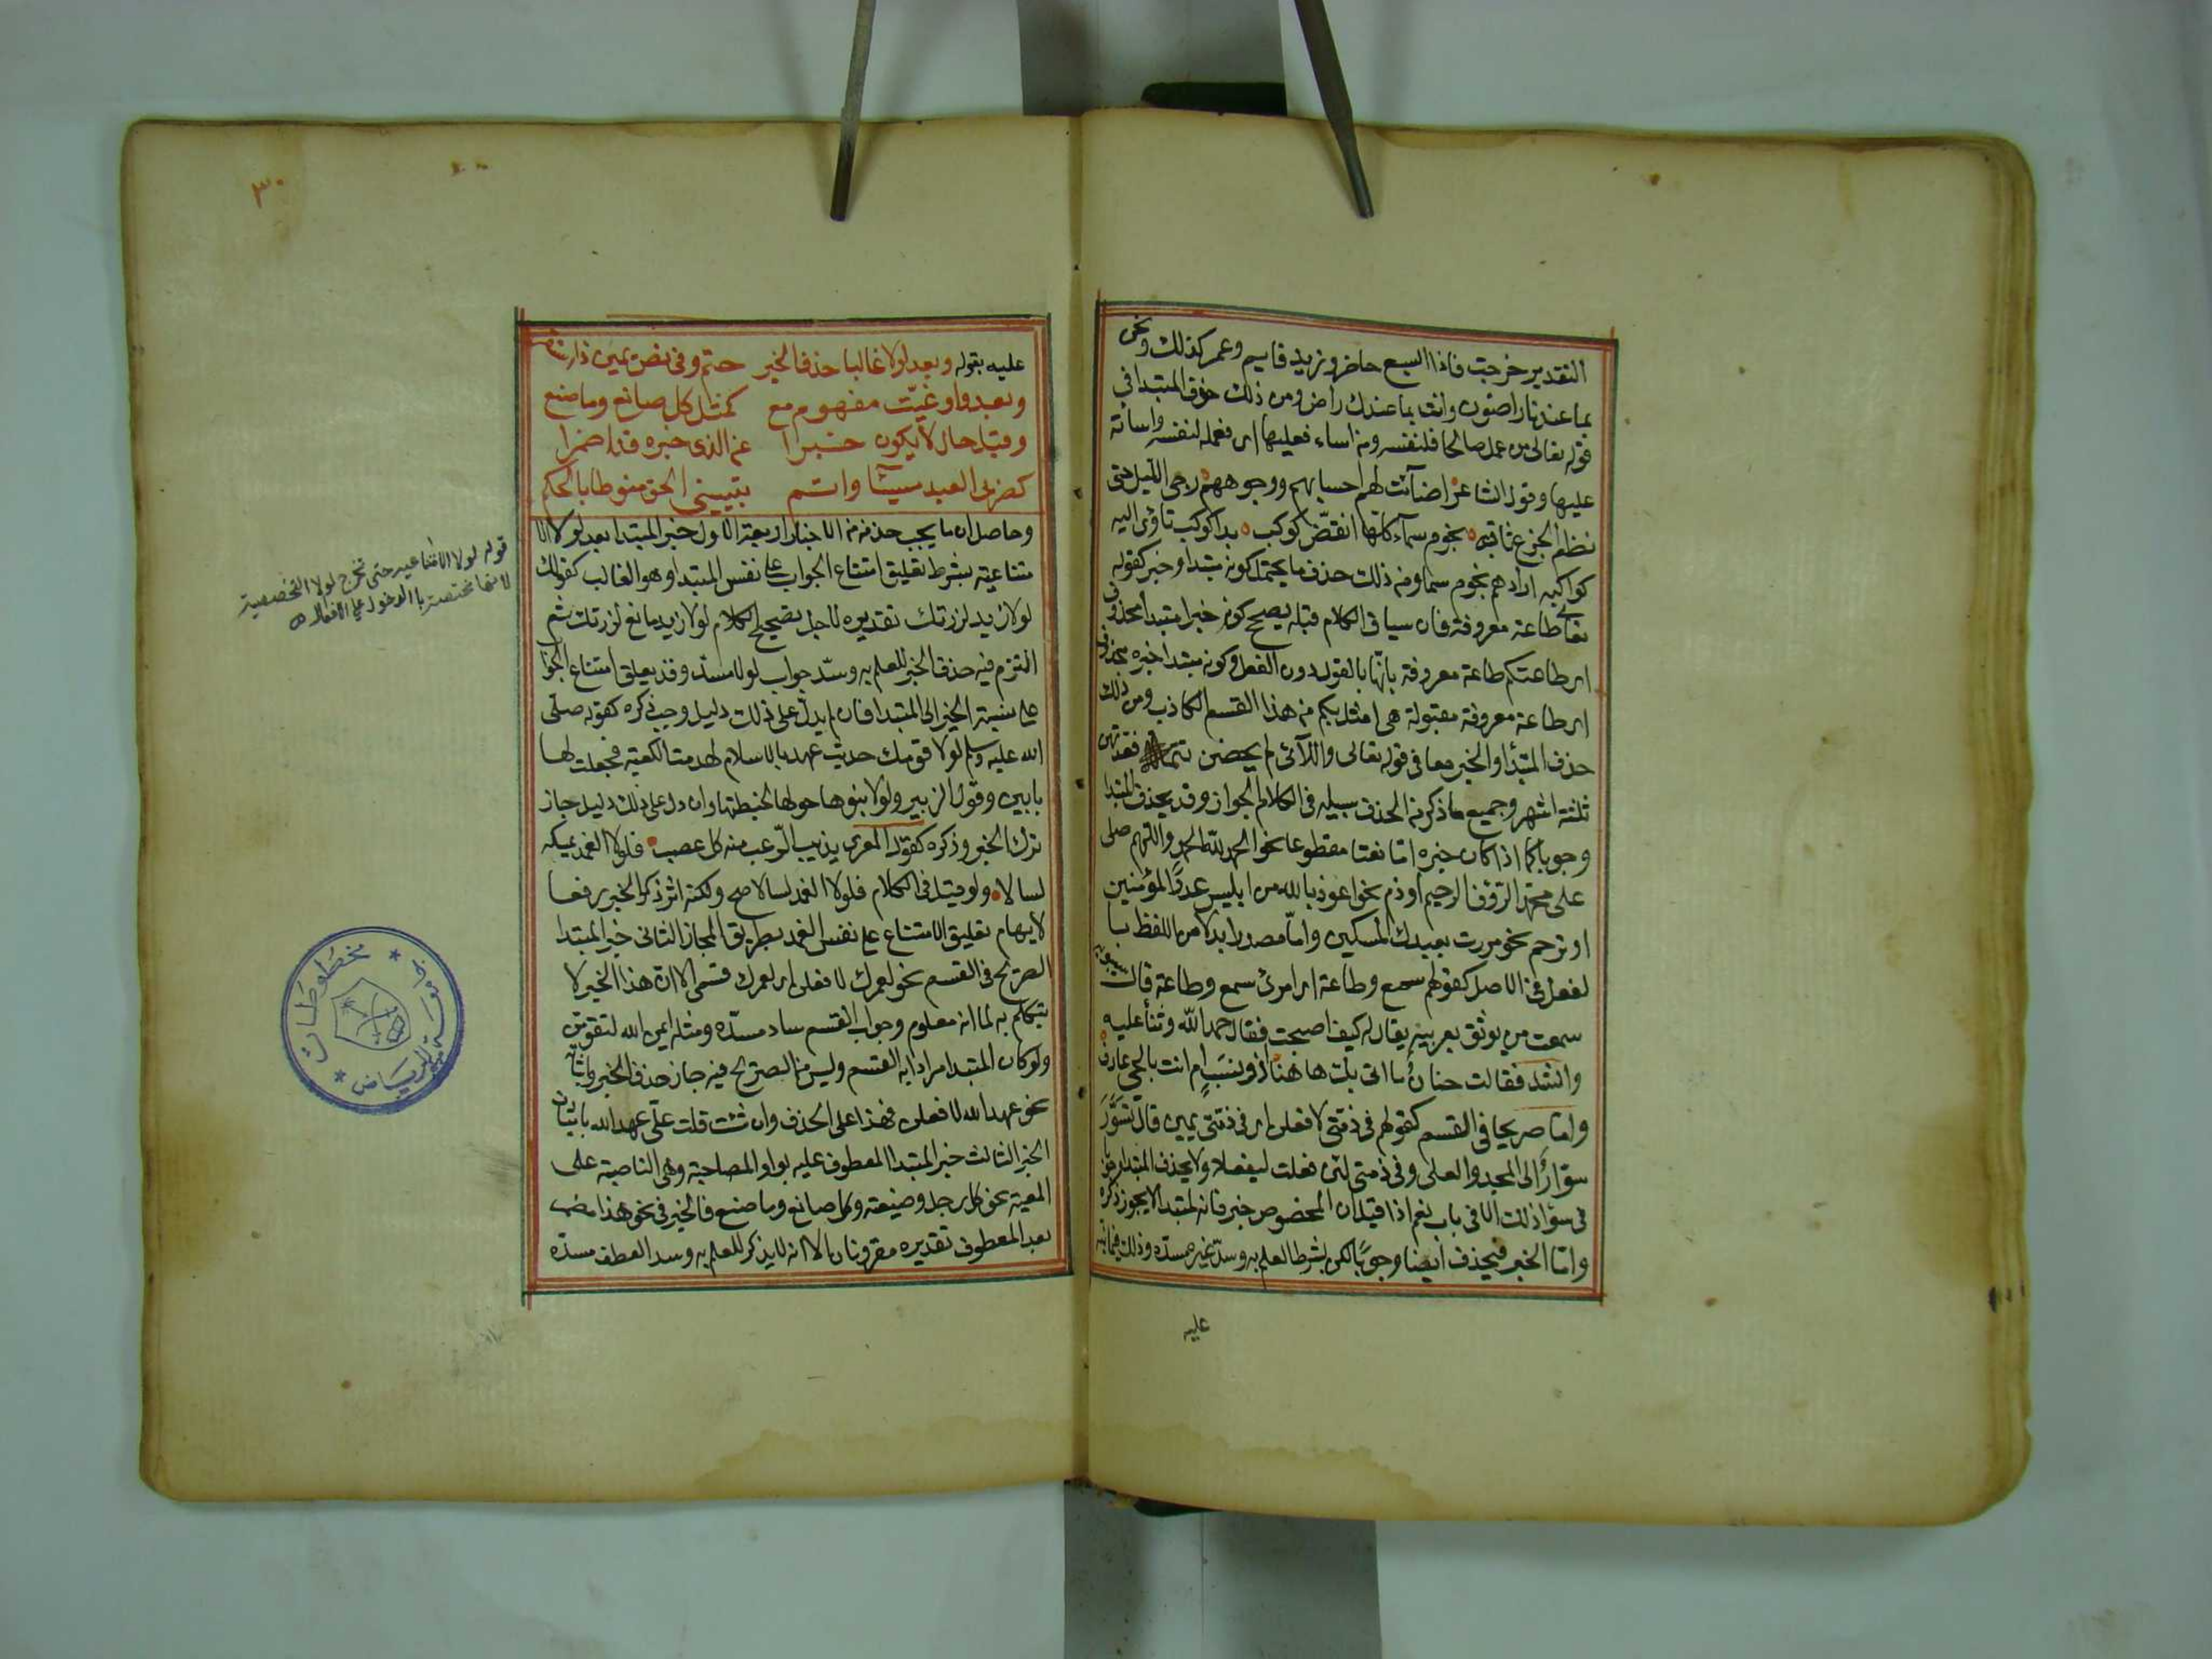 التقدير خرجت فاذا السبع حاضر وزيد قايم وعمر كذلك ونحن
بما عندنا راضون وانت بما عندك راض ومن ذلك حذف المبتدا في
قوله تعالى من عمل صالحا فلنفسه ومن اساء فعليها اى فعمله لنفسه واساته
عليها وقول الشاعر اضآئت لهم احسابهم ووجوههم دجى الليل حتى
نظم الجزع ثاقبه نجوم سمآء كلما انقض كوكب بدا كوكب تاوى اليه
كواكبه ارادهم نجوم سما ومنه ذلك حذف ما يحتمل كونه مبتدا وخبر كقوله
تعالى طاعة معروفة فان سياق الكلام قبله يصحح كونه خبرا مبتدا محذوف
اى طاعتكم طاعة معروفة بانها بالقول دون الفعل وكونه مبتدا خبره محذوف
اى طاعة معروفة مقبولة هى امثل بكم من هذا القسم الكاذب ومن ذلك
حذف المبتدأ والخبر معا فى قوله تعالى واللآئى لم يحضن فعدتهن
ثلثة اشهر وجميع ما ذكر من الحذف سبيله فى الكلام الجواز وقد يحذف المبتدا
وجوبا كما اذا كان خبره اما نعتا مقطوعا نحو الحمد لله الحميد واللهم صلى
على محمد الرؤف الرحيم او ذم نحو اعوذ بالله من ابليس عدو المؤمنين
او ترحم نحو مررت بعبدك المسكين واما مصدرا بدلا من اللفظ با
لفعل فى الاصل كقولهم سمع وطاعة اى امرى سمع وطاعة قال سيبويه
سمعت من يوثق بعربيته يقال له كيف اصبحت فقال حمد الله وثنأ عليه
وانشد فقالت حنان ما اتى بك ها هنا اذو نسب ام انت بالحى عارف
واما صريحا فى القسم كقولهم فى ذمتى لا فعلن اى فى ذمتى يمين قال تسور
سوار الى المجد والعلى وفى ذمتى لئن فعلت ليفعلا ولا يحذف المبتدا وجوبا
فى سوا ذلك الا فى باب نعم اذا قيل ان المخصوص خبر فانه لمبتدا لا يجوز ذكره
واما الخبر فيحذف ايضا وجوبا لكن بشرط العلم به وسد غيره مسده وذلك فيما نبه
عليه
٣٠
عليه بقوله وبعد لولا غالبا حذف الخبر حتم وفى نص يمين ذا
وبعد واو عينت مفهوم مع كمثل كل صانع وما صنع
وقبل حال لا يكون خبرا عن الذى خبره قد اضمرا
كضربى العبد مسيئا واتم تبيينى الحق منوطا بالحكم
وحاصل ان ما يجب حذفه من الاخبار اربعة الاول خبر المبتدا بعد لولا الا
متناعية بشرط تعليق امتناع الجواب على نفس المبتدا وهو الغالب كقولك
لولا زيد لزرتك تقديره لاجل تصحيح الكلام لولا زيد مانع لزرتك ثم
التزم فيه حذف الخبر للعلم به وسد جواب لولا مسده وقد يعلق امتناع الجوا
على نسبة الخبر الى المبتدا فان لم يدل على ذلك دليل وجب ذكره كقوله صلى
الله عليه وسلم لولا قومك حديث عهد بالاسلام لهدمت الكعبة فجعلت لها
بابين وقول الزبير ولولا بنوها حولها لخبطتها وان دل على ذلك دليل جاز
ترك الخبر وذكره كقول المعرى يذيب الرعب منه كل عضب فلولا الغمد يمسكه
لسالا ولو قيل فى الكلام فلولا الغمد لسالا صح ولكنه اثر ذكر الخبر رفعا
لايهام تعليق الامتناع على نفس الغمد بطريق المجاز الثانى خبر المبتدا
الصريح فى القسم نحو لعمرك لا فعلن اى لعمرك قسمى الا ان هذا الخبر لا
يتكلم به لما انه معلوم وجواب القسم ساد مسده ومثله ايمن الله لتقومن
ولو كان المبتدا مرادا به القسم وليس من الصريح فيه جاز حذف الخبر واثباته
نحو عهد الله لا فعلن فهذا على الحذف وان شئت قلت على عهد الله باثبات
الخبر الثالث خبر المبتدا المعطوف عليه بواو المصاحبة وهى الناصبة على
المعية نحو كل رجل وضيعته وكل صانع وما صنع فالخبر فى نحو هذا مضمر
بعد المعطوف تقديره مقرونان الا انه لا يذكر للعلم به وسد العطف مسده
قوله لولا الامتناعيه حتى تخرج لولا التحضيضية
لانها مختصة بالدخول على الافعال
مخطوطات
الرياض